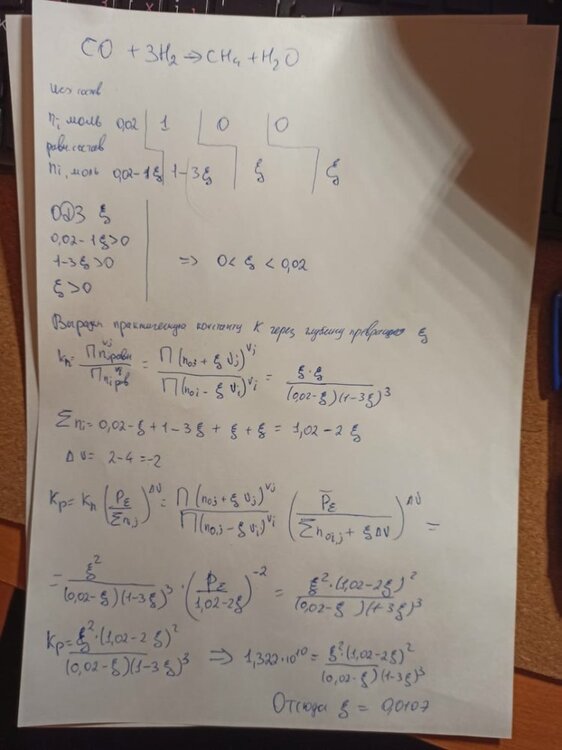 CO + 3H₂ → CH₄ + H₂O
Исх состав
nᵢ моль 0,02 | 1 | 0 | 0
равн. состав
nᵢ, моль 0,02-1ξ | 1-3ξ | ξ | ξ
ОДЗ ξ
0,02-1ξ>0
1-3ξ>0 => 0<ξ<0,02
ξ>0
Выразим практическую константу K через глубину превращ ξ
Kₙ = Π nⱼ равн^νⱼ / Π nᵢ рав^νᵢ = Π(n₀ⱼ + ξ νⱼ)^νⱼ / Π(n₀ᵢ - ξ νᵢ)^νᵢ = ξ·ξ / (0,02-ξ)(1-3ξ)³
Σnᵢ = 0,02-ξ+1-3ξ+ξ+ξ = 1,02-2ξ
Δν = 2-4=-2
Kp = Kₙ (P_Σ / Σnᵢ,ⱼ)^Δν = Π(n₀ⱼ+ξ νⱼ)^νⱼ / Π(n₀,ⱼ-ξ νᵢ)^νᵢ (P̄_Σ / Σn₀ᵢ,ⱼ + ξΔν)^Δν =
= ξ² / (0,02-ξ)(1-3ξ)³ · (P_Σ / 1,02-2ξ)^-2 = ξ²·(1,02-2ξ)² / (0,02-ξ)(1-3ξ)³
Kp = ξ²·(1,02-2ξ)² / (0,02-ξ)(1-3ξ)³ => 1,322·10¹⁰ = ξ²·(1,02-2ξ)² / (0,02-ξ)(1-3ξ)³
Отсюда ξ = 0,0107